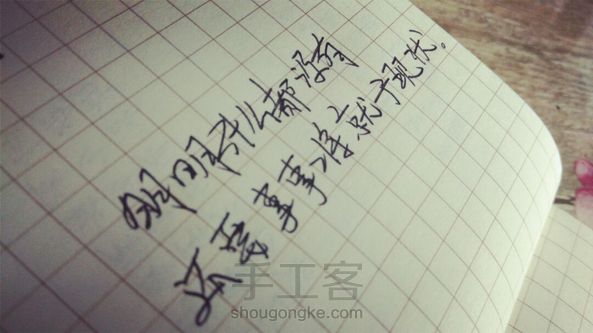 明明我什么都没有
还要事事将就于现状。
手工客
shougongke.com